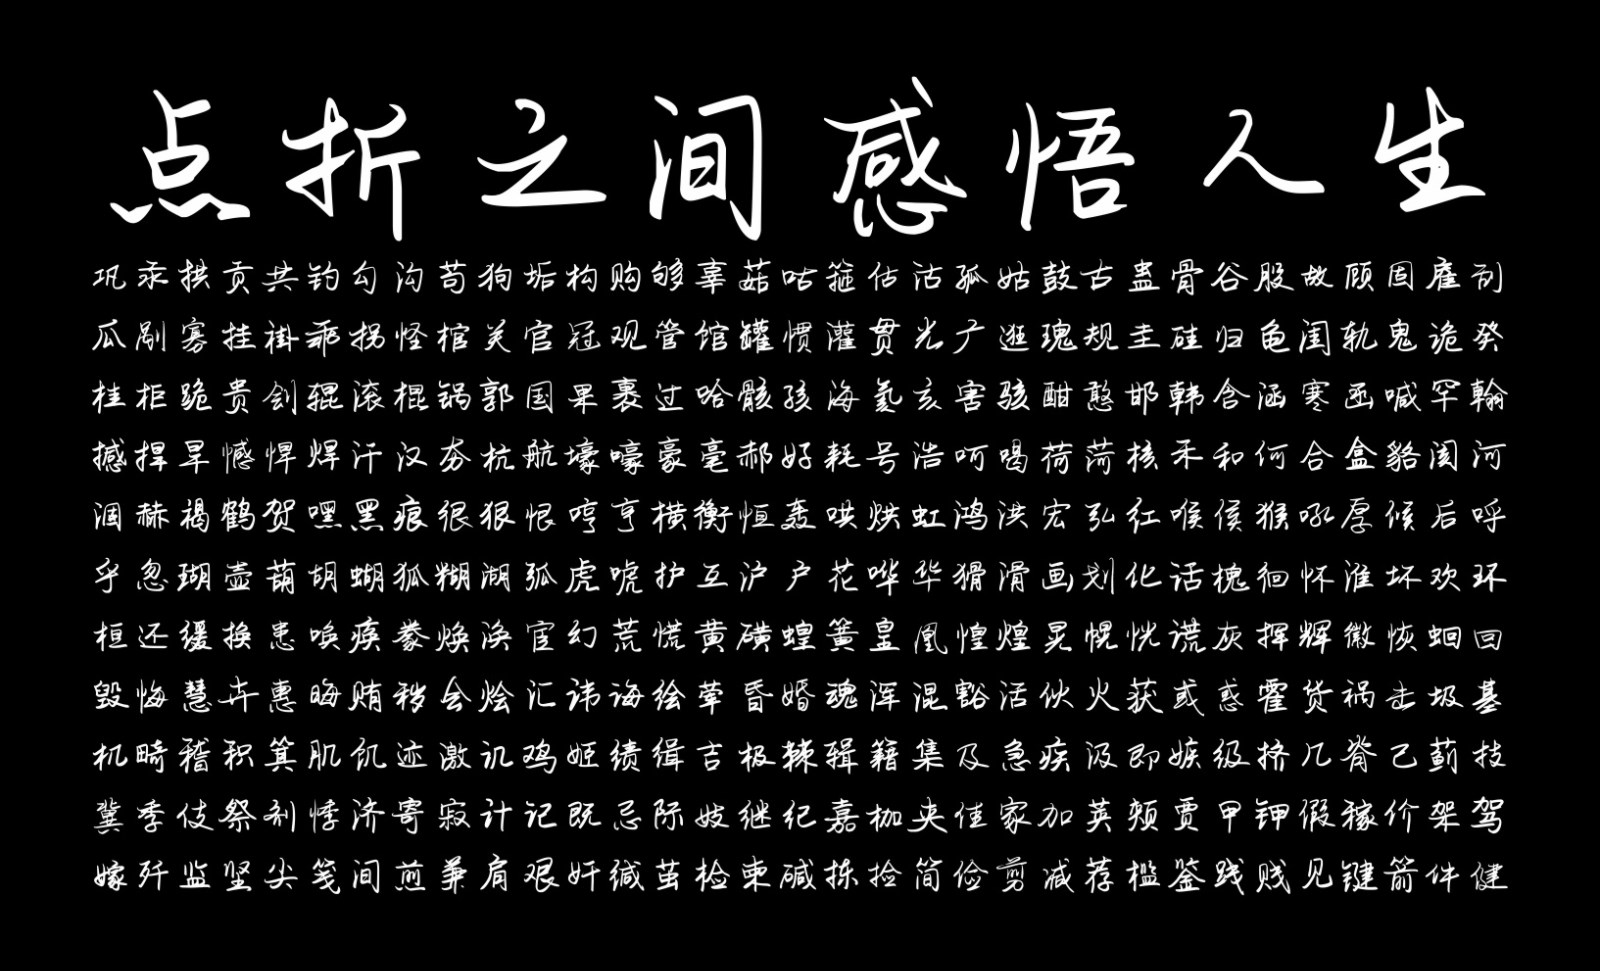 点折之间感悟人生
巩汞拱贡共钓勾沟苟狗垢构购够辜菇咕箍估沽孤姑鼓古蛊骨谷股故顾固雇刮
瓜剐寡挂褂乖拐怪棺关官冠观管馆罐惯灌贯光广逛瑰规圭硅归龟闺轨鬼诡癸
桂柜跪贵刽辊滚棍锅郭国果裹过哈骸孩海氦亥害骇酣憨邯韩含涵寒函喊罕翰
撼捍旱憾悍焊汗汉夯杭航壕嚎豪毫郝好耗号浩呵喝荷菏核禾和何合盒貉阂河
涸赫褐鹤贺嘿黑痕很狠恨哼亨横衡恒轰哄烘虹鸿洪宏弘红喉侯猴吼厚候后呼
乎忽瑚壶葫胡蝴狐糊湖弧虎唬护互沪户花哗华猾滑画划化话槐徊怀淮坏欢环
桓还缓换患唤痪豢焕涣宦幻荒慌黄磺蝗簧皇凰惶煌晃幌恍谎灰挥辉徽恢蛔回
毁悔慧卉惠晦贿秽会烩汇讳诲绘荤昏婚魂浑混豁活伙火获或惑霍货祸击圾基
机畸稽积箕肌饥迹激讥鸡姬绩缉吉极棘辑籍集及急疾汲即嫉级挤几脊己蓟技
冀季伎祭剂悸济寄寂计记既忌际妓继纪嘉枷夹佳家加荚颊贾甲钾假稼价架驾
嫁歼监坚尖笺间煎兼肩艰奸缄茧检柬碱拣捡简俭剪减荐槛鉴践贱见键箭件健